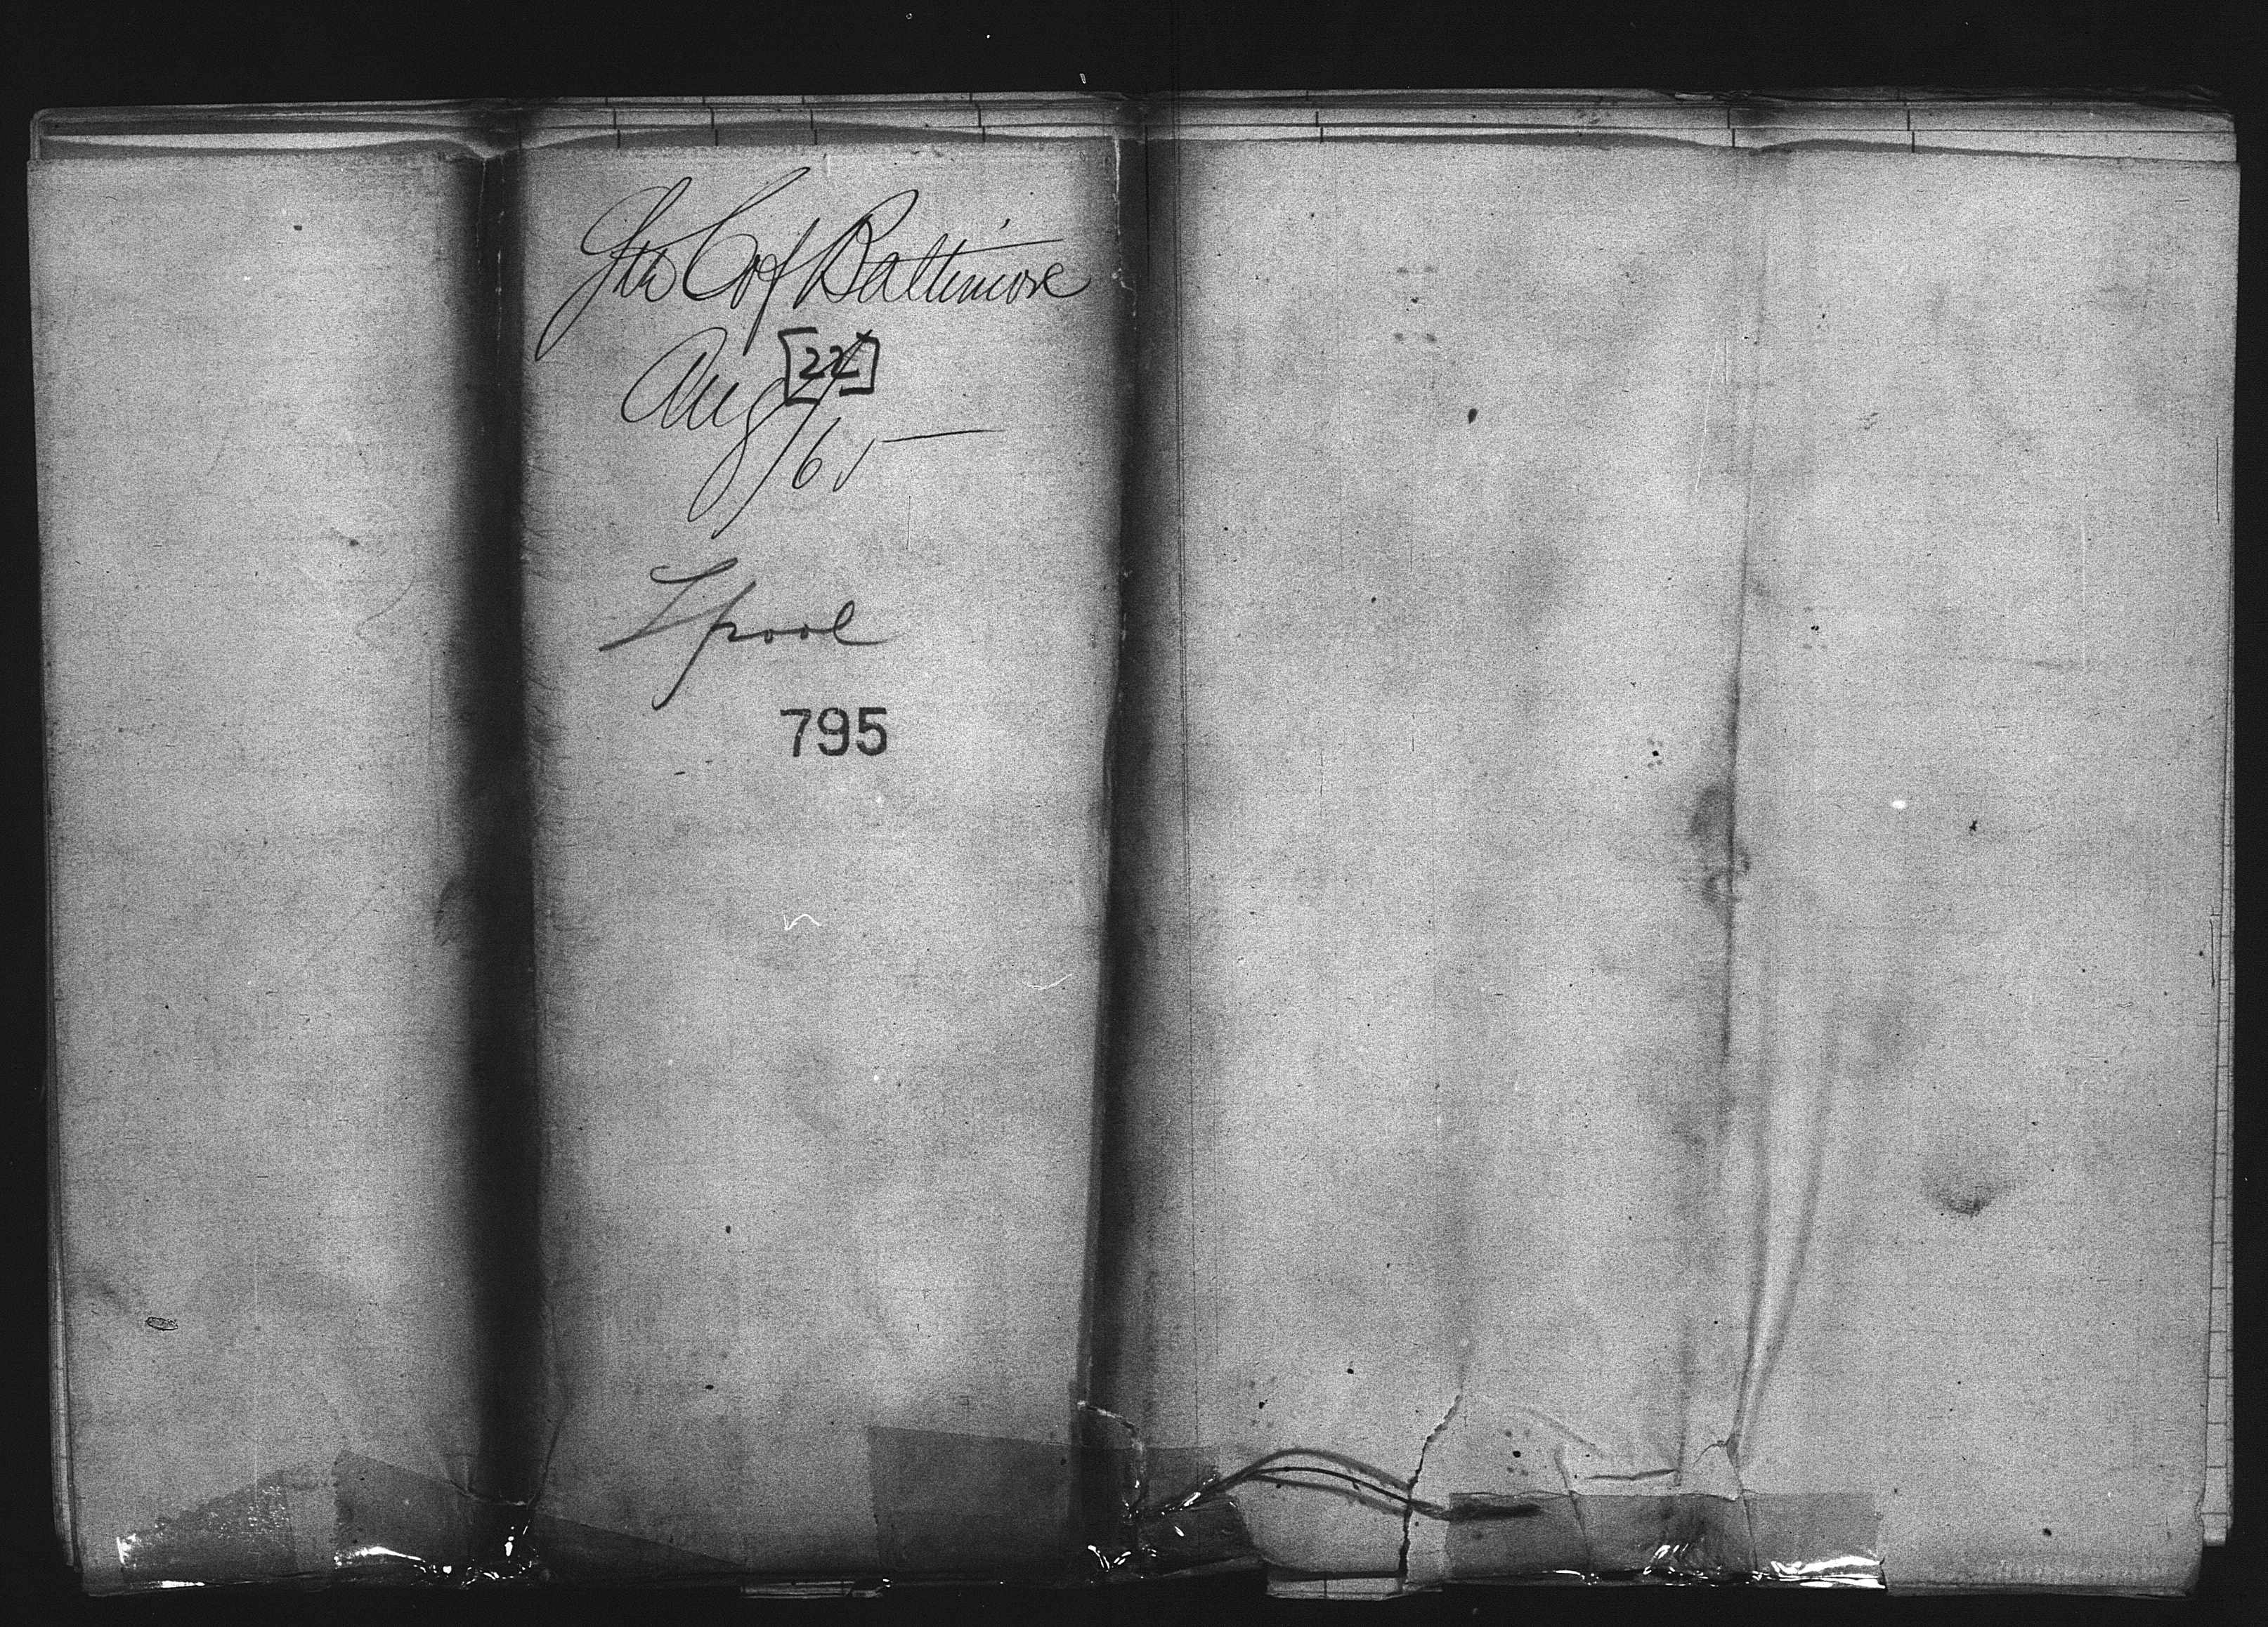 Str C of Baltimore
Aug [22]
/65
Lpool
795